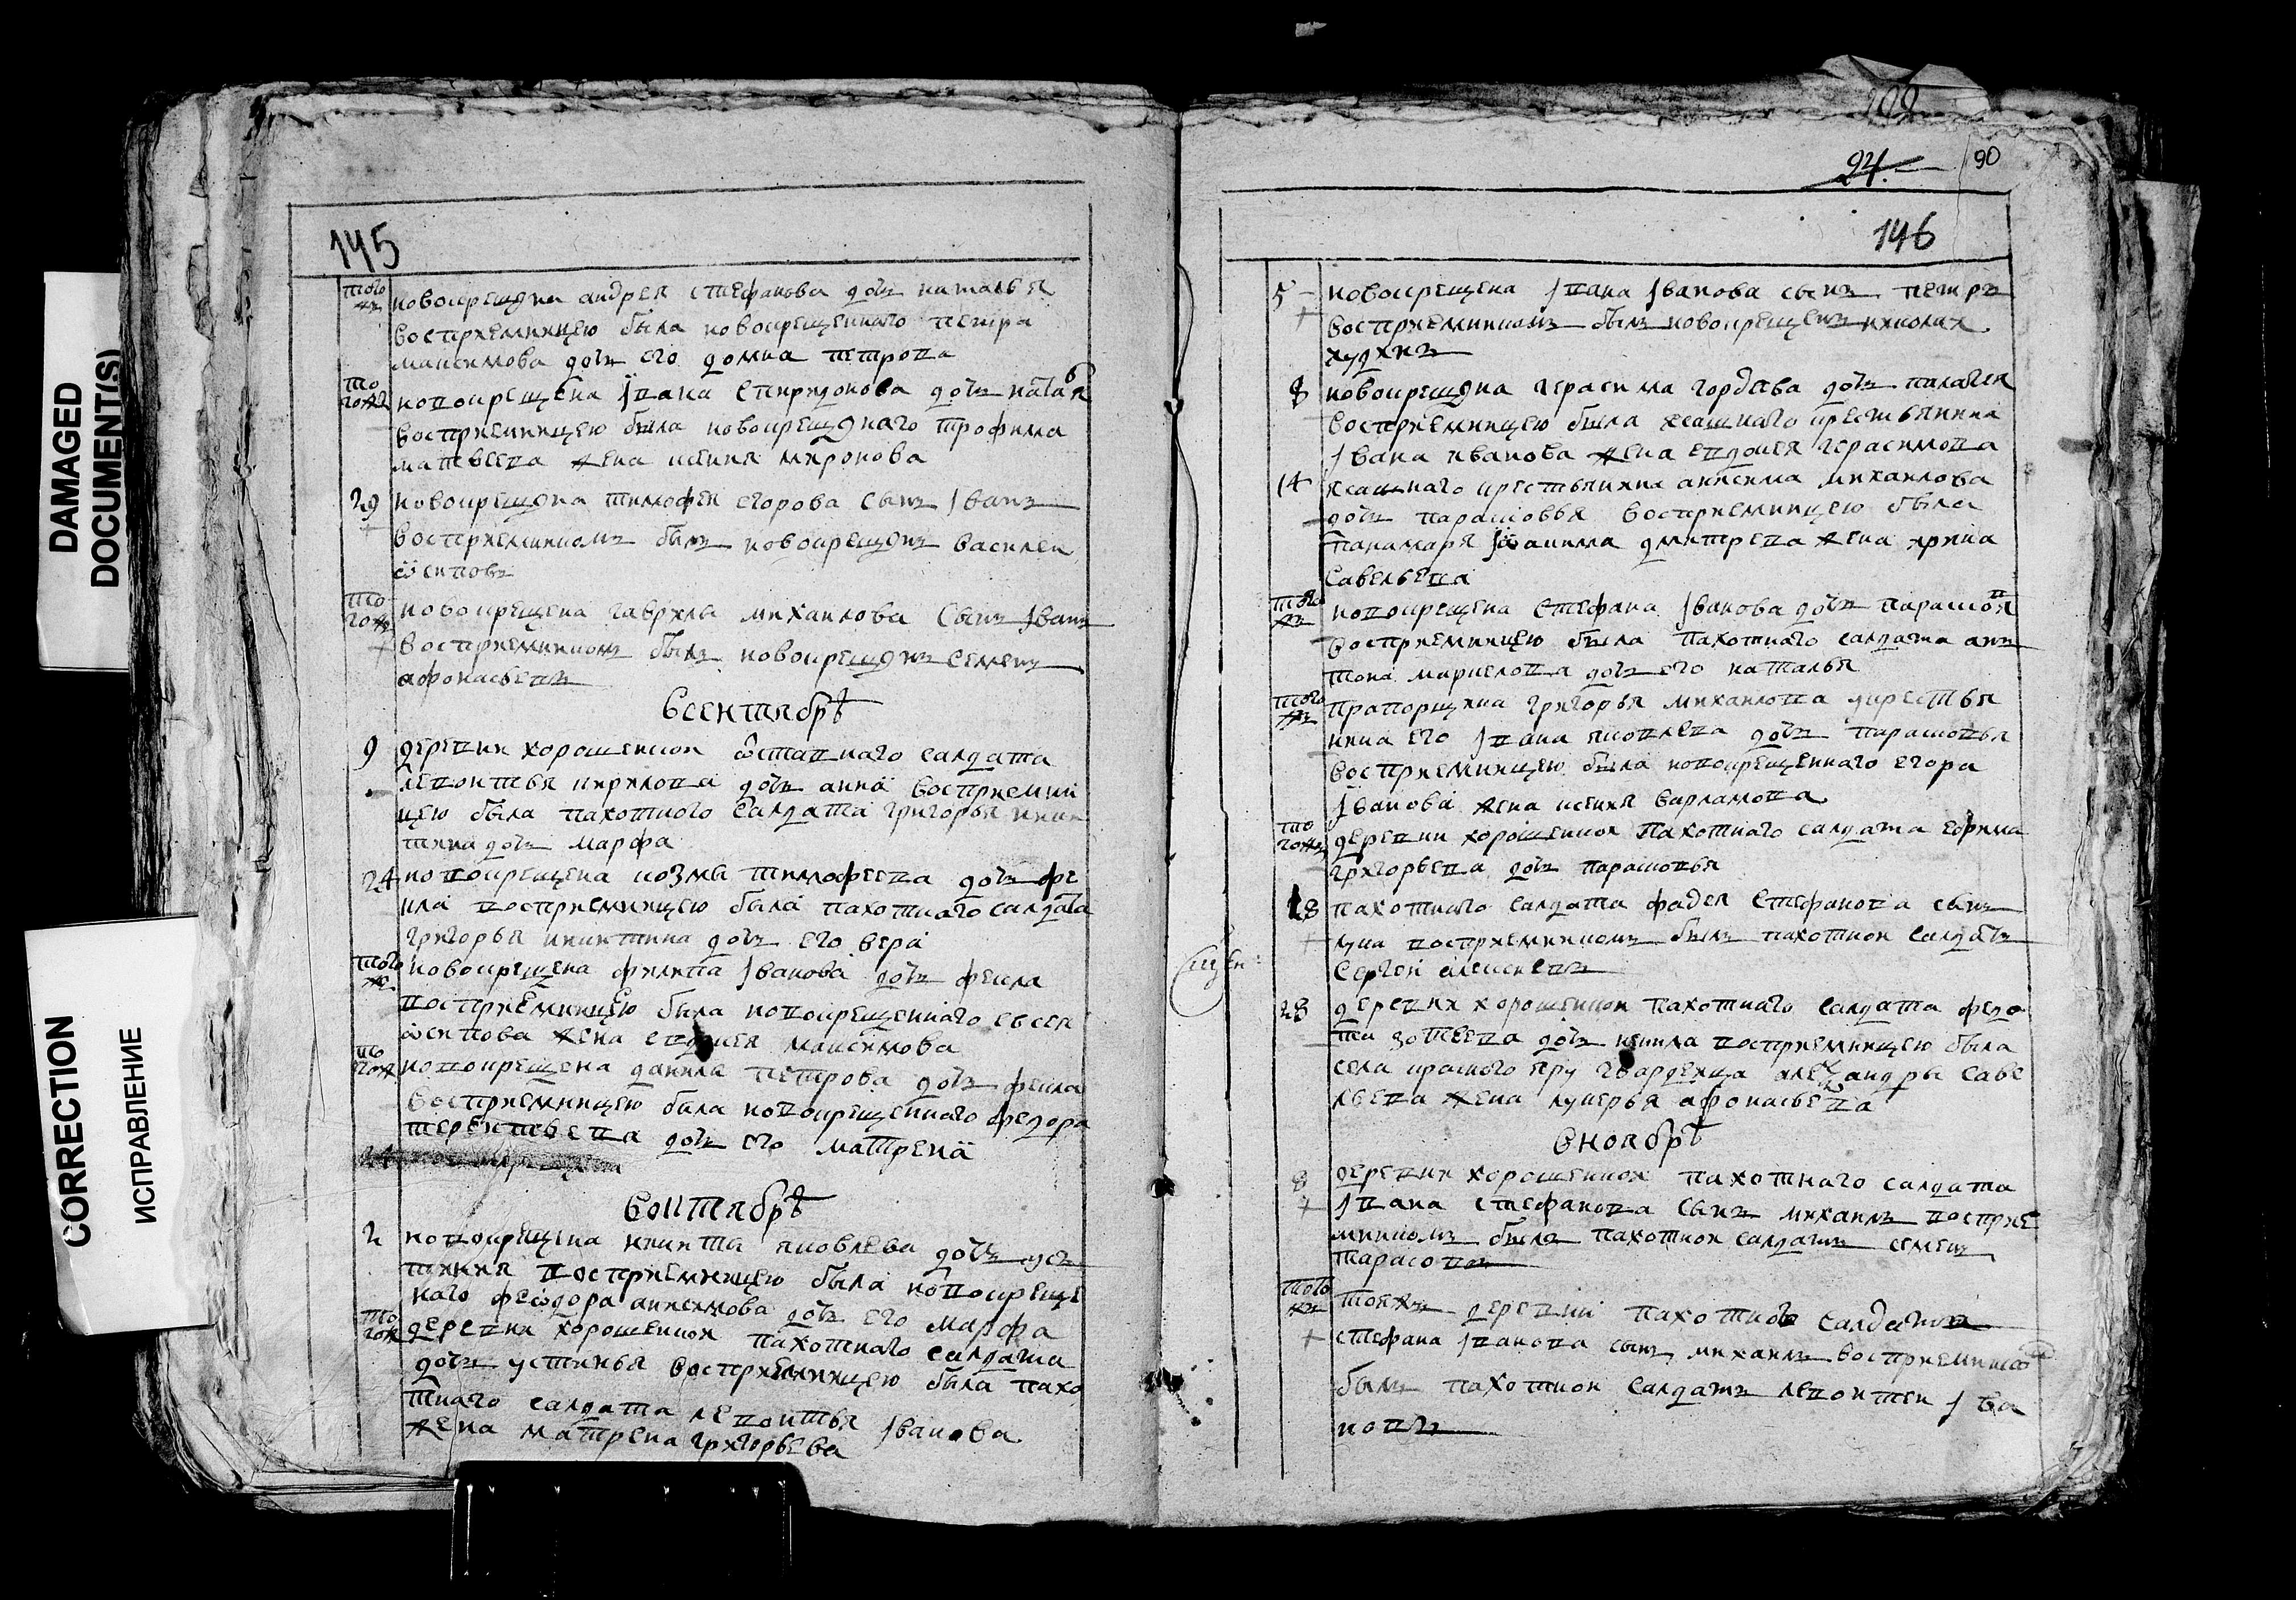 DAMAGED
DOCUMENT(S)
CORRECTION
ИСПРАВЛЕНИЕ
145
того новокрещена андрея стефанова дочь наталья
жъ
восприемницею была новокрещеннаго петра
максимова дочь его домна петрова
то новокрещена Iвана спиридонова дочь наталья
гожъ
восприемницею была новокрещенаго трофима
матвеева жена ксения миронова
29 новокрещена тимофея егорова сынъ Iванъ
восприемникомъ былъ новокрещенъ василеи
ѡсиповъ
то новокрещена гаврила михаилова сынъ Iванъ
гожъ
восприемникомъ былъ новокрещенъ семенъ
афонасьевъ
Всентябрѣ
9 деревни хорошенкои ѡставнаго салдата
левонтья кирилова дочь анна восприемни
цею была пахотного салдата григорья ники
тина дочь марфа
24 новокрещена козмы тимофеева дочь фе
кла восприемницею была пахотнаго салдата
григорья никитина дочь его вера
того новокрещена филипа Iванова дочь фекла
же
восприемницею была новокрещеннаго евсея
ѡсипова жена евдокея максимова
то новокрещена данила петрова дочь фекла
гож
восприемницею была новокрещеннаго федора
терентьева дочь его матрена
Воктябрѣ
2 новокрещена никиты яковлева дочь ус
тиния восприемницею была новокреще
наго феѡдора анисимова дочь его марфа
то деревни хорошенкои пахотнаго салдата
гож
дочь устинья восприемницею была пахо
тнаго салдата левонтья Iванова
жена матрена григорьева
102
24.
90
146
5 новокрещена Iвана Iванова сынъ петръ
восприемникомъ былъ новокрещенъ николаи
худинъ
8 новокрещена герасима гордѣева дочь палагея
восприемницею была ясашнаго крестьянина
Iвана иванова жена евдокея герасимова
14 ясашнаго крестьянина анисима михаилова
дочь парасковья восприемницею была
панамаря Iѡакима дмитрева жена ирина
савельева
того новокрещена стефана Iванова дочь парасковя
жъ
восприемницею была пахотнаго салдата ан
тона маркелова дочь его наталья
того прапорщика григорья михаилова крестья
жъ
нина его Iвана яковлева дочь парасковья
восприемницею была новокрещеннаго егора
Iванова жена ксения варламова
то деревни хорошенкои пахотнаго салдата ефима
гожъ
григорьева дочь парасковья
18 пахотнаго салдата фадея стефанова сынъ
лука восприемникомъ былъ пахотнои салдатъ
сергеи алексеевъ
28 деревни хорошенкои пахотнаго салдата федо
та зотеева дочь ненила восприемницею была
села красного яру гвардеица алеѯандры саве
льева жена лукерья афонасьева
Вноябрѣ
8 деревни хорошенкои пахотнаго салдата
Iвана стефанова сынъ михаилъ восприе
мникомъ былъ пахотнои салдатъ семенъ
тарасовъ
того тояжъ деревни пахотного салдата
жъ
стефана Iванова сынъ михаилъ восприемнико
былъ пахотнои салдатъ левонтеи Iва
новъ